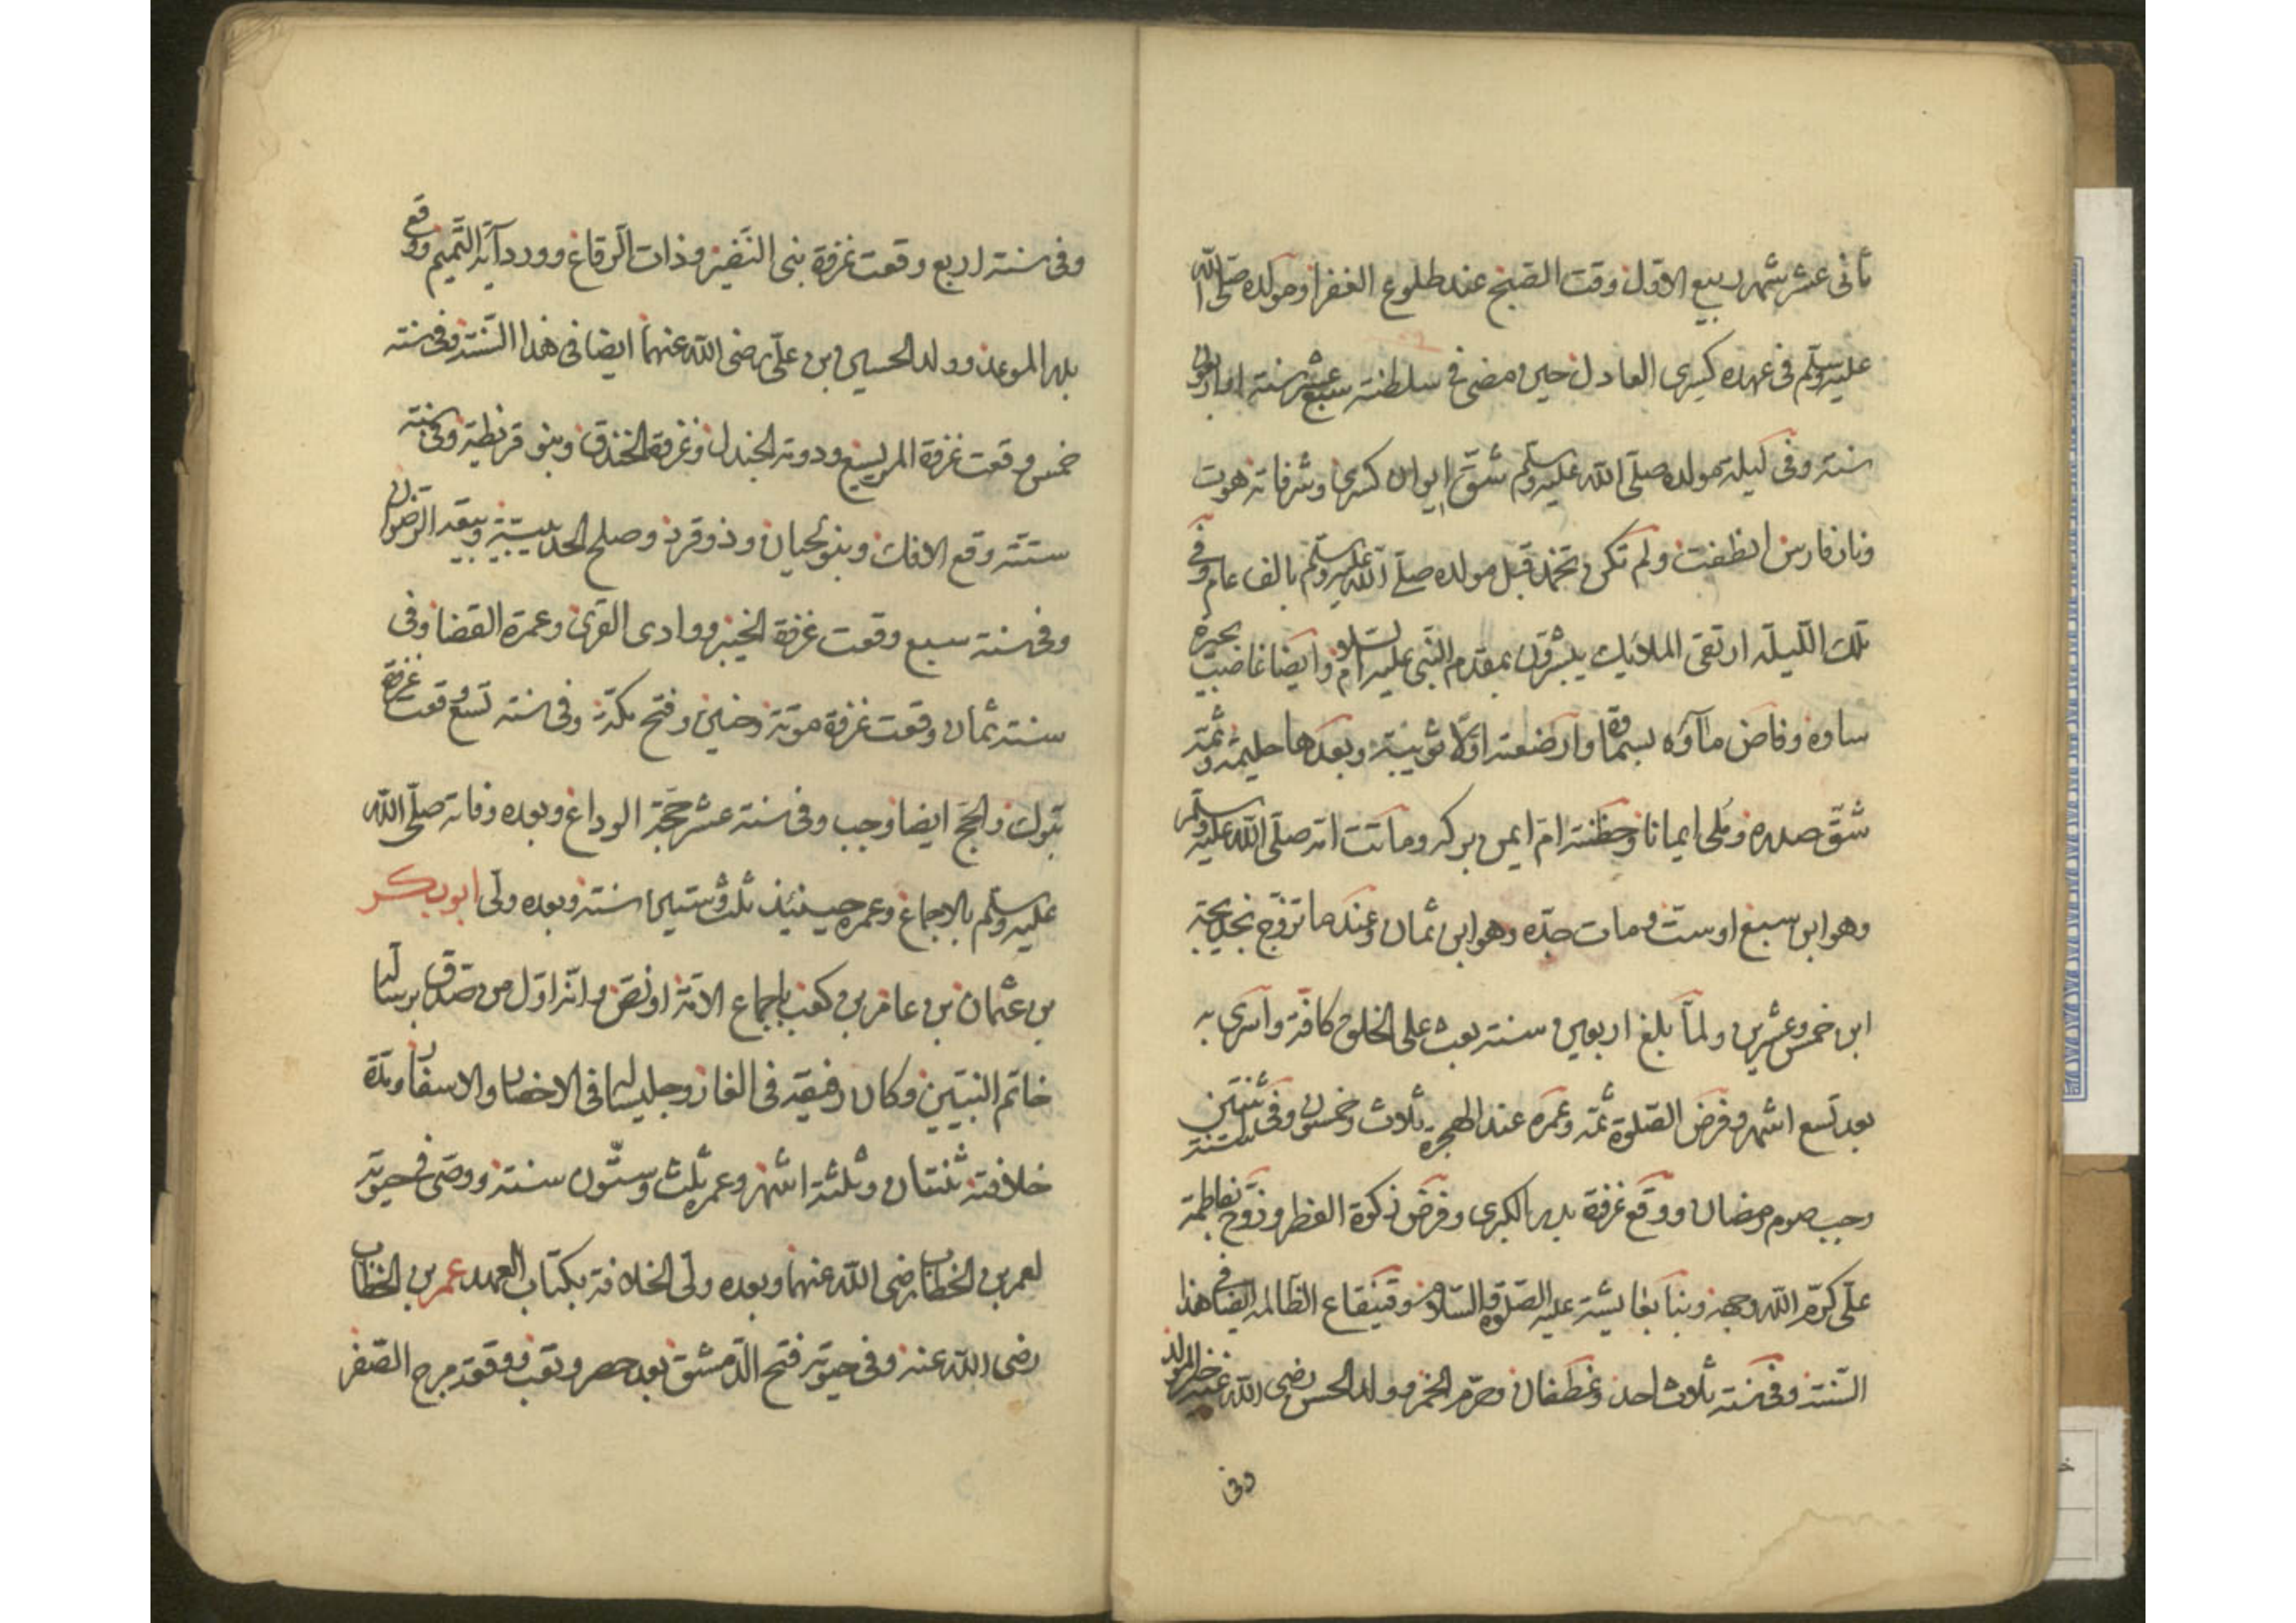 ثانى عشر شهر ربيع الاول وقت الصبح عند طلوع الغفر او مولده صلى الله
عليه وسلم فى عهده كسرى العادل حين مضى فى سلطنته سبع عشر سنة
سنة وفى ليلة مولده صلى الله عليه وسلم شق ايوان كسرى وشرفاته هوت
ونار فارس انطفت ولم تكن تخمد قبل مولده صلى الله عليه وسلم بالف عام وفى
تلك الليلة ارتقى الملائك يبشرون بمقدم النبى عليه السلام وايضا غاضت بحيرة
ساوه وفاض ماؤه بسماوة وارضعته اولا ثويبة وبعدها حليمة وثمة
شق صدره وملى ايمانا وحظنته ام ايمن بركه وماتت امه صلى الله عليه وسلم
وهو ابن سبع او ست ومات جده وهو ابن ثمان وعندما تزوج بخديجة
ابن خمس وعشرين ولما بلغ اربعين سنة بعث على الخلق كافة واسرى به
بعد تسع اشهر وفرض الصلوة ثمه وعمره عند الهجرة ثلاث وخمسون وفى سنة ثنتين
وجب صوم رمضان ووقع غزوة بدر الكبرى وفرض زكوة الفطر وزوج بفاطمة
على كرم الله وجهه وبنا بعايشة عليه الصلوة والسلام وقينقاع الظالمه ايضا فى هذا
السنة وفى سنة ثلاث احد وغطفان وحرم الخمر وولد الحسن رضى الله عنه
وفى
وفى سنة اربع وقعت غزوة بنى النضير وذات الرقاع وورد آية التميم ووقع
بدر الموعد وولد الحسين بن على رضى الله عنهما ايضا فى هذا السنة وفى سنة
خمس وقعت غزوة المريسيع ودومة الجندل وغزوة الخندق وبنو قريظة وفى سنة
ستة وقع الافك وبنو لحيان وذو قرد وصلح الحديبية وبيعة الرضوان
وفى سنة سبع وقعت غزوة الخيبر ووادى القرى وعمرة القضا وفى
سنة ثمان وقعت غزوة موتة وحنين وفتح مكة وفى سنة تسع وقعت غزوة
تبوك والحج ايضا وجب وفى سنة عشر حجة الوداع وبعده وفاته صلى الله
عليه وسلم بالاجماع وعمره حينئذ ثلث وستين سنة وبعده ولى ابو بكر
بن عثمان بن عامر بن كعب باجماع الامة او نص وانه اول من صدق برسالة
خاتم النبيين وكان رفيقه فى الغار وجليسا فى الاحضار والاسفار ومدة
خلافته ثنتان وثلثة اشهر وعمره ثلث وستون سنة ووصى فى حيوته
لعمر بن الخطاب رضى الله عنهما وبعده ولى الخلافة بكتاب العهد عمر بن الخطاب
رضى الله عنه وفى حيوته فتح الدمشق بعد حصر وتعب ووقعة مرج الصفر